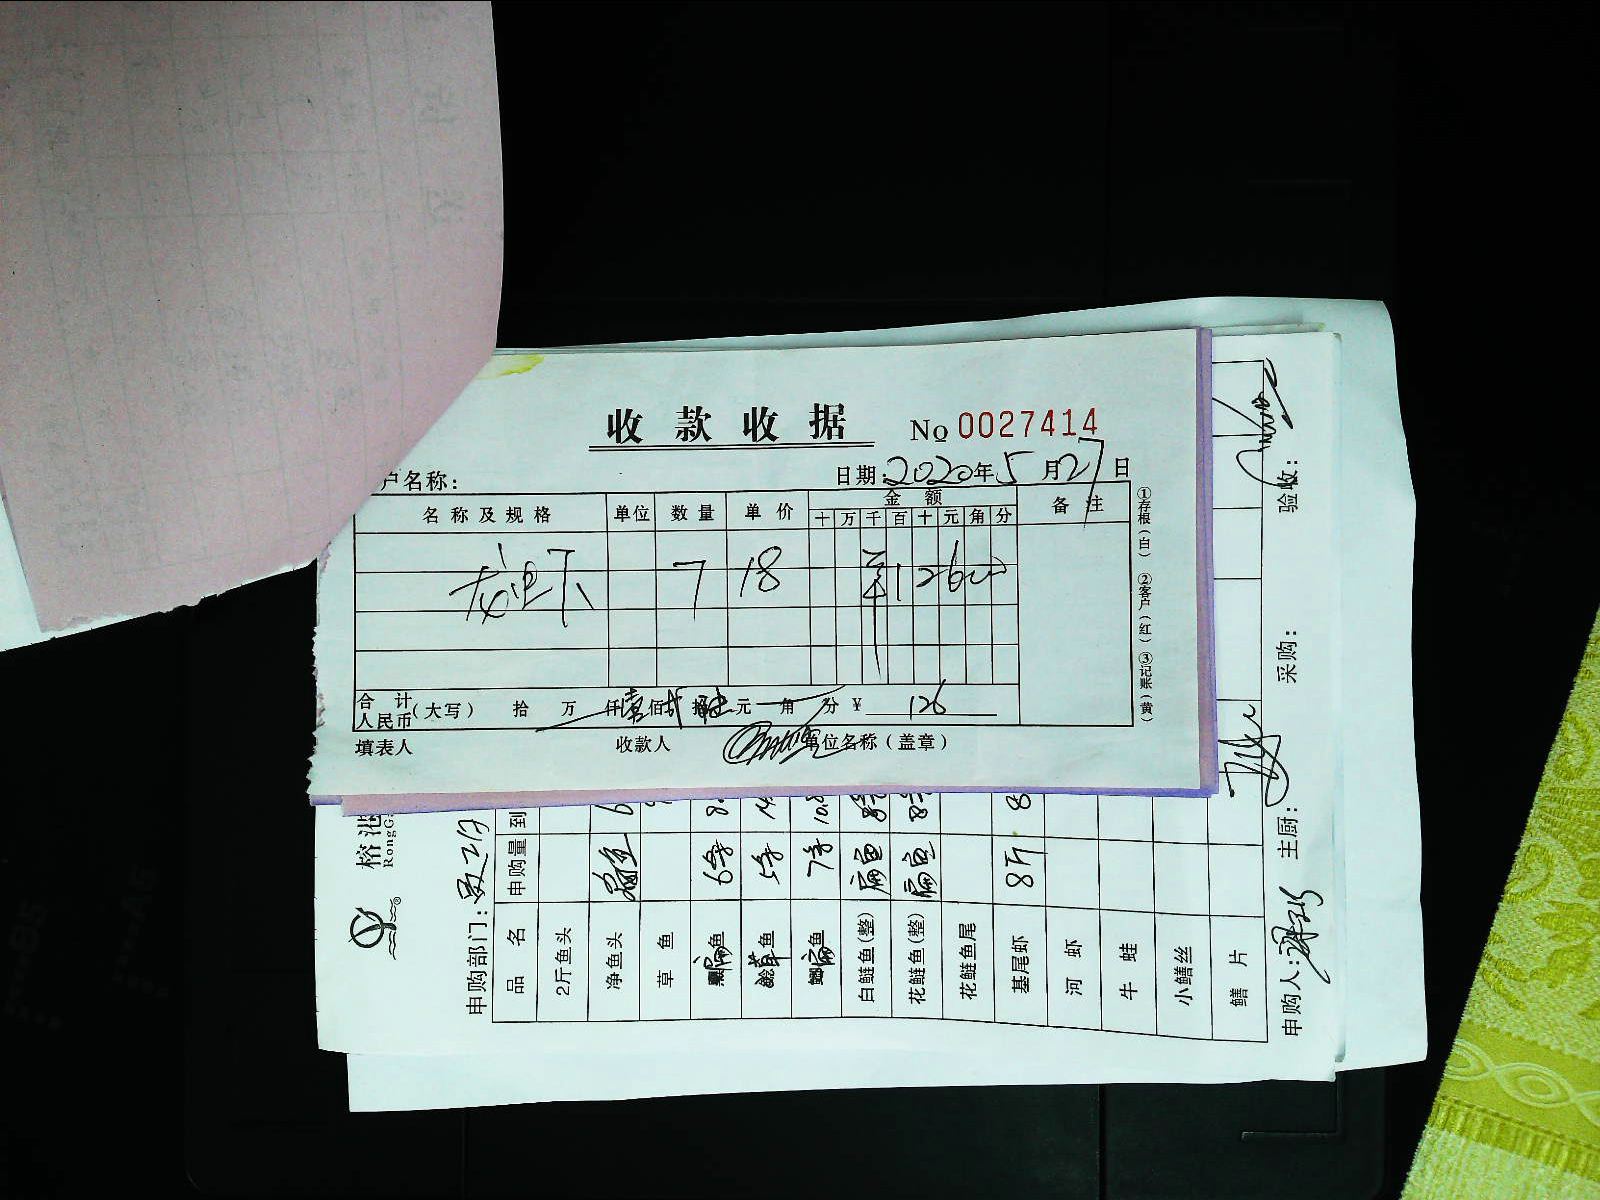 收款收据
No 0027414
户名称:
日期:2020年5月27日
名称及规格 单位 数量 单价 金额 备注
十 万 千 百 十 元 角 分
7 18 12600
合计人民币(大写) 拾 万 仟壹佰贰拾陆元 角 分 ¥ 126
填表人 收款人 单位名称(盖章)
①存根(白) ②客户(红) ③记账(黄)
榕港
RongGa
申购部门:
品名 申购量 到
2斤鱼头
净鱼头
草鱼
鱼 6条
鱼 5条
鱼 7条
白鲢鱼(整) 扁鱼
花鲢鱼(整) 扁鱼
花鲢鱼尾
基尾虾 8斤 8
河虾
牛蛙
小鳝丝
鳝片
申购人: 主厨: 采购: 验收: